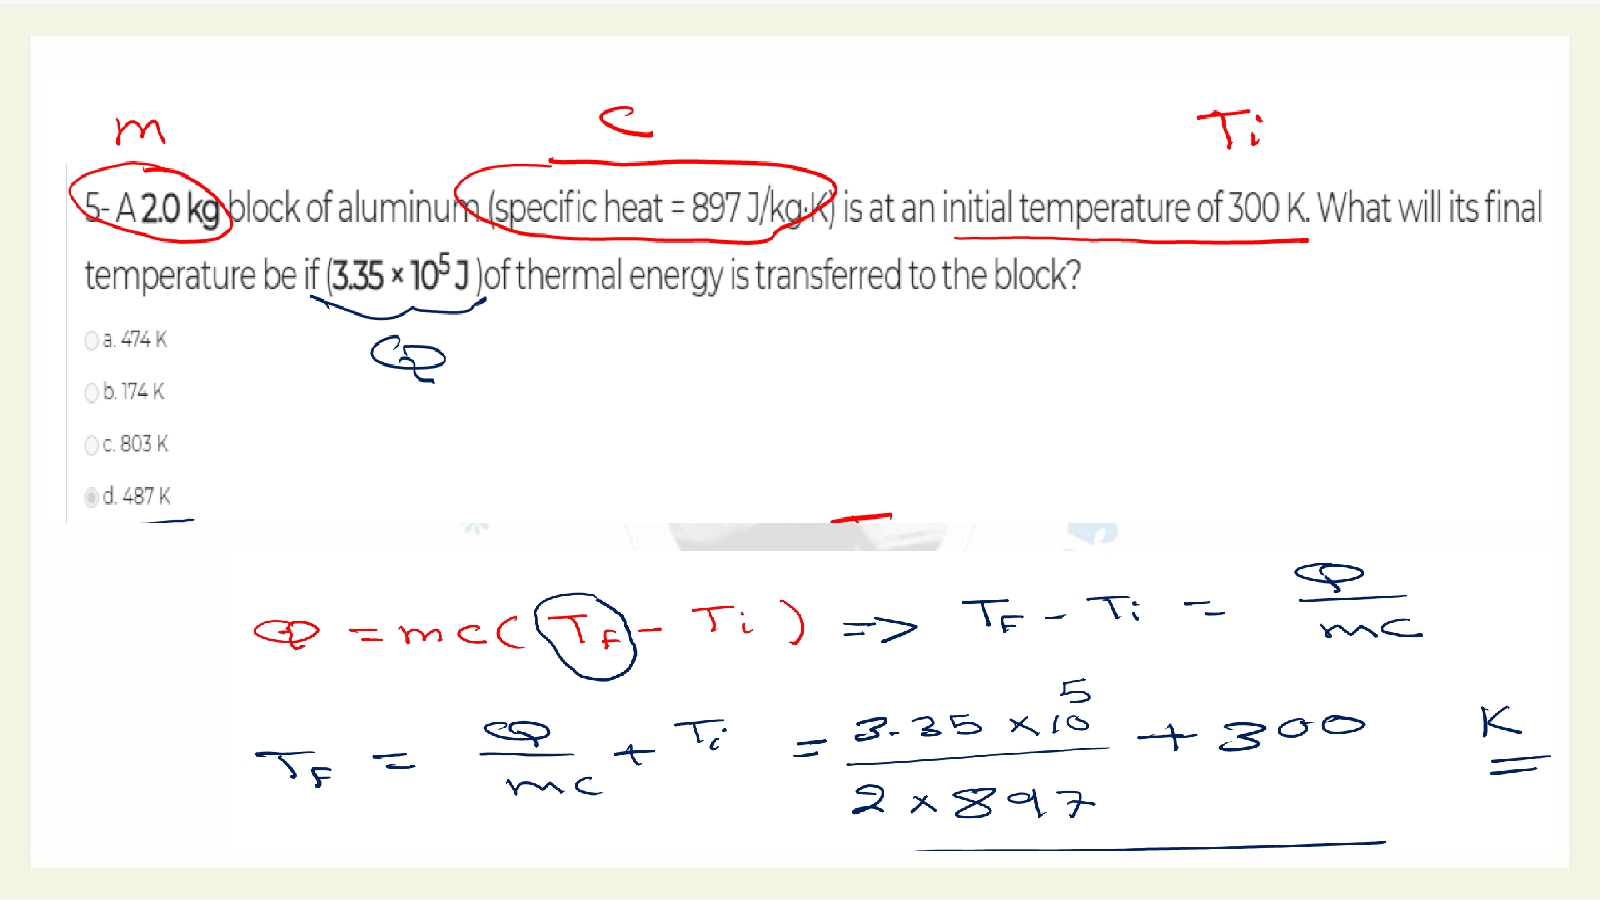 m c Ti
5- A 2.0 kg block of aluminum (specific heat = 897 J/kg·K) is at an initial temperature of 300 K. What will its final
temperature be if (3.35 × 10⁵ J )of thermal energy is transferred to the block?
Q
a. 474 K
b. 174 K
c. 803 K
d. 487 K
Q = mc( TF - Ti ) => TF - Ti = Q/mc
TF = Q/mc + Ti = 3.35 × 10⁵/2 × 897 + 300 K